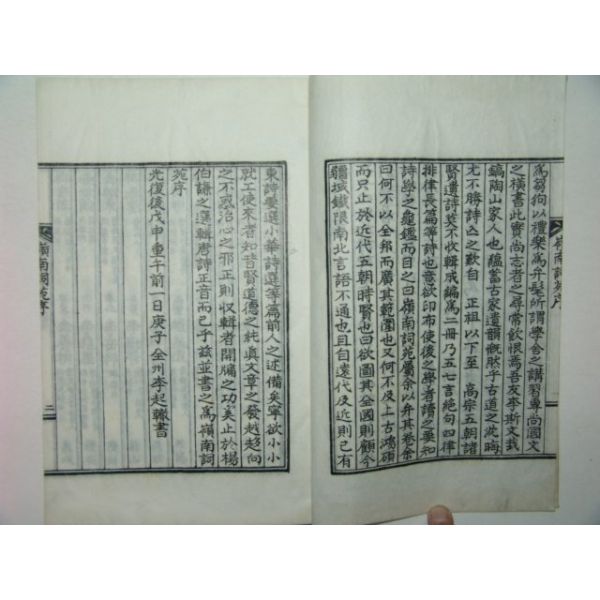 爲芻狗以禮樂爲弁髦所謂學舍之講習專尚國文
之橫書此實尚志者之尋常飮恨焉吾友李斯文哉
鎬陶山家人也蘊蓄古家遺韻慨然乎古道之沈晦
尤不勝詩亡之歎自 正祖以下至 高宗五朝諸
賢遺詩莫不收輯成編爲二冊乃五七言絶句四律
排律長篇等詩也意欲印布使後之學者讀之要知
詩學之龜鑑而目之曰嶺南詞苑屬余以弁其卷余
曰何不以全邦而廣其範圍也又何不及上古鴻碩
而只止於近代五朝時賢也曰欲圖其全國則顧今
疆域鐵限南北言語不通也且自遠代及近則已有
嶺南詞苑序
東詩要選小華詩選等篇前人之述備矣寧欲小小
就工使來者知昔賢道德之純眞文章之發越趨向
之不惑治心之邪正則收輯者開牖之功奚止於楊
伯謙之選輯唐詩正音而已乎玆並書之爲嶺南詞
苑序
光復後戊申重午前一日庚子全州李起轍書
嶺南詞苑序
二